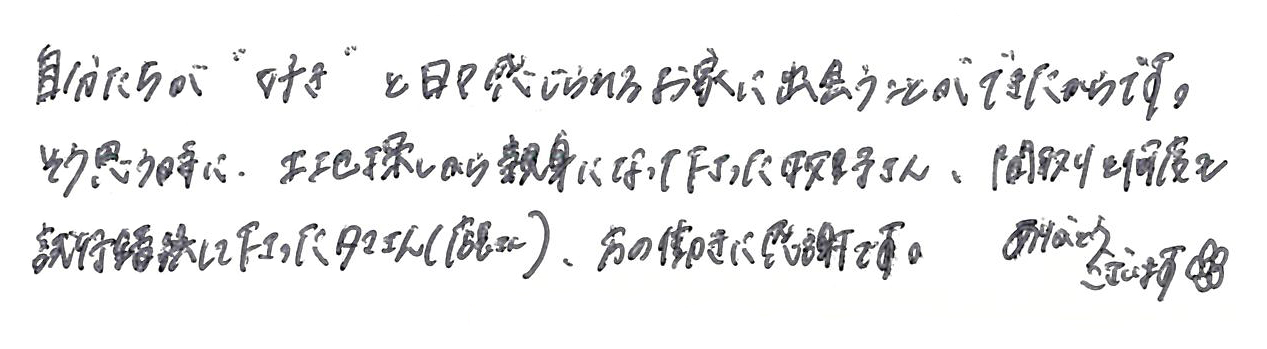 自分たちが"好き"と日々感じられるお家に出会うことができたからです。
そう思う時に、土地探しから親身になって下さったさん、間取りを何度も
試行錯誤して下さったさん()、方の働きに感謝です。 ありがとうございます